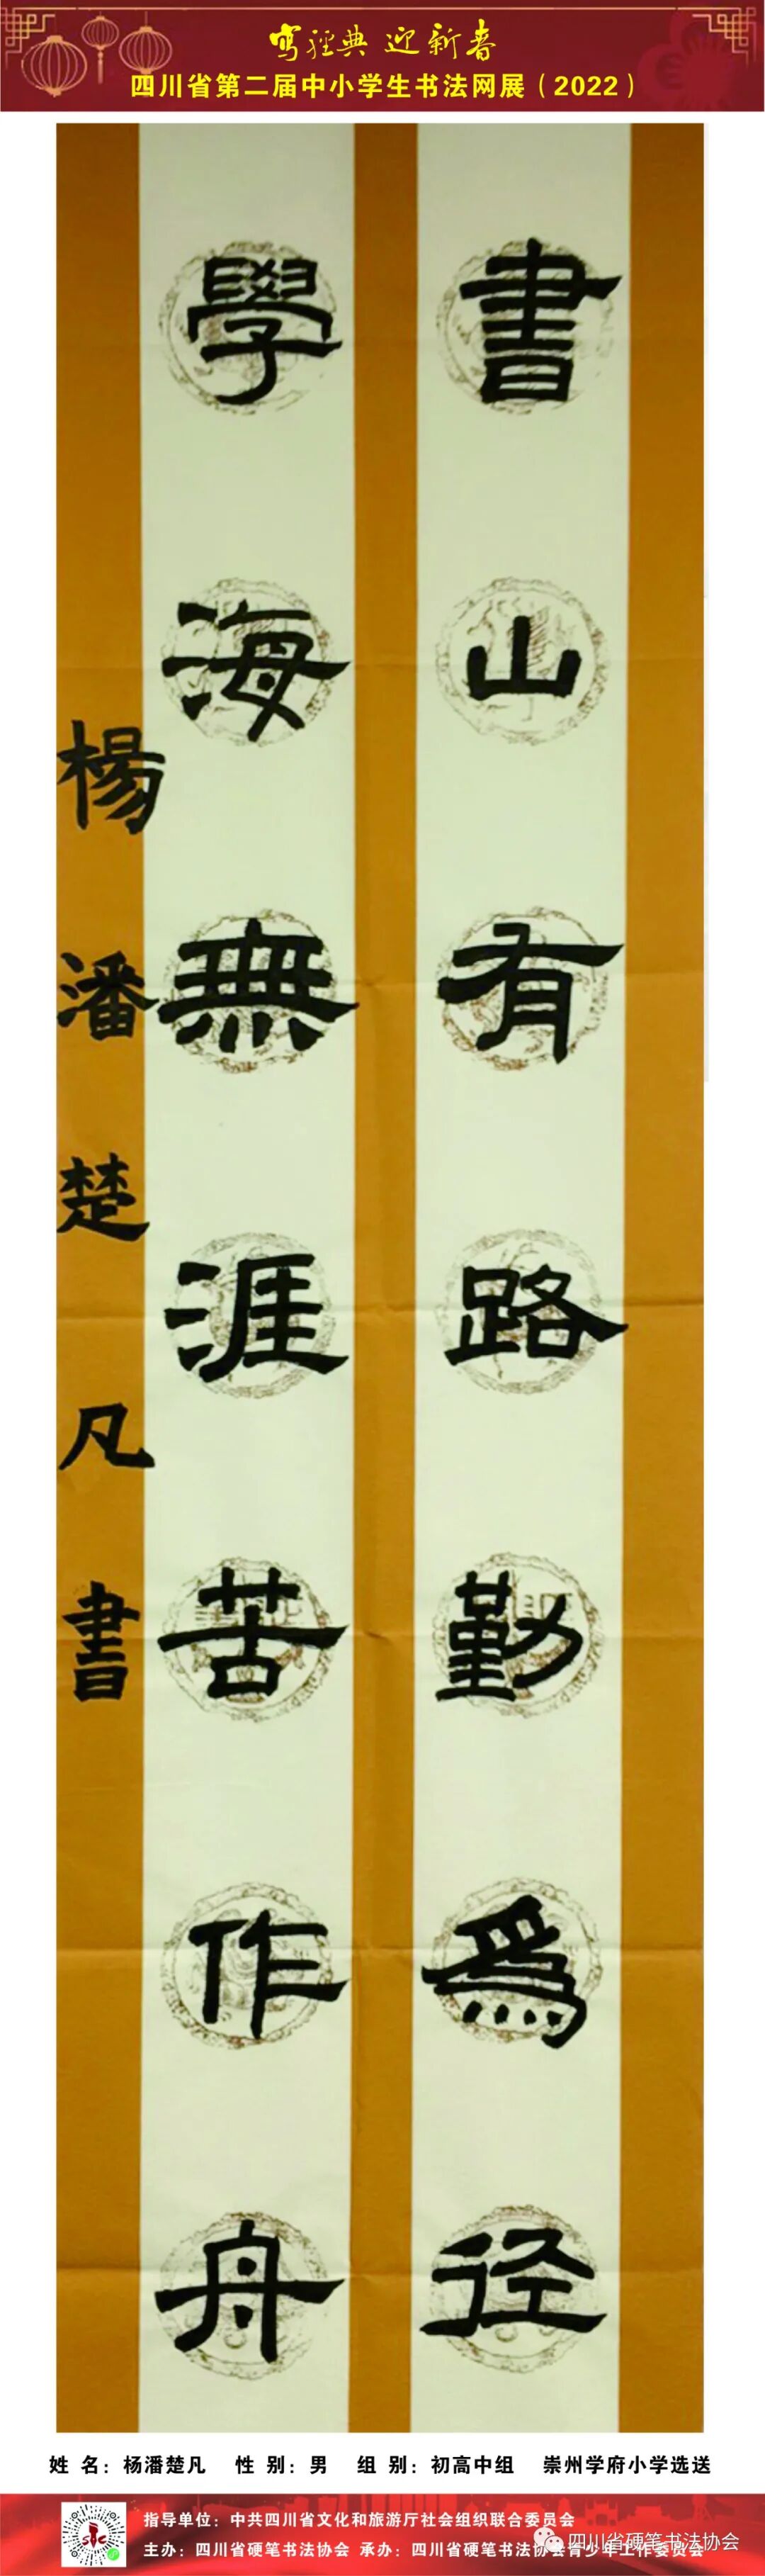 写经典 迎新春
四川省第二届中小学生书法网展（2022）
書山有路勤為径
學海無涯苦作舟
楊潘楚凡書
姓 名：杨潘楚凡 性 别：男 组 别：初高中组 崇州学府小学选送
指导单位：中共四川省文化和旅游厅社会组织联合委员会
主办：四川省硬笔书法协会 承办：四川省硬笔书法协会青少年工作委员会
四川省硬笔书法协会